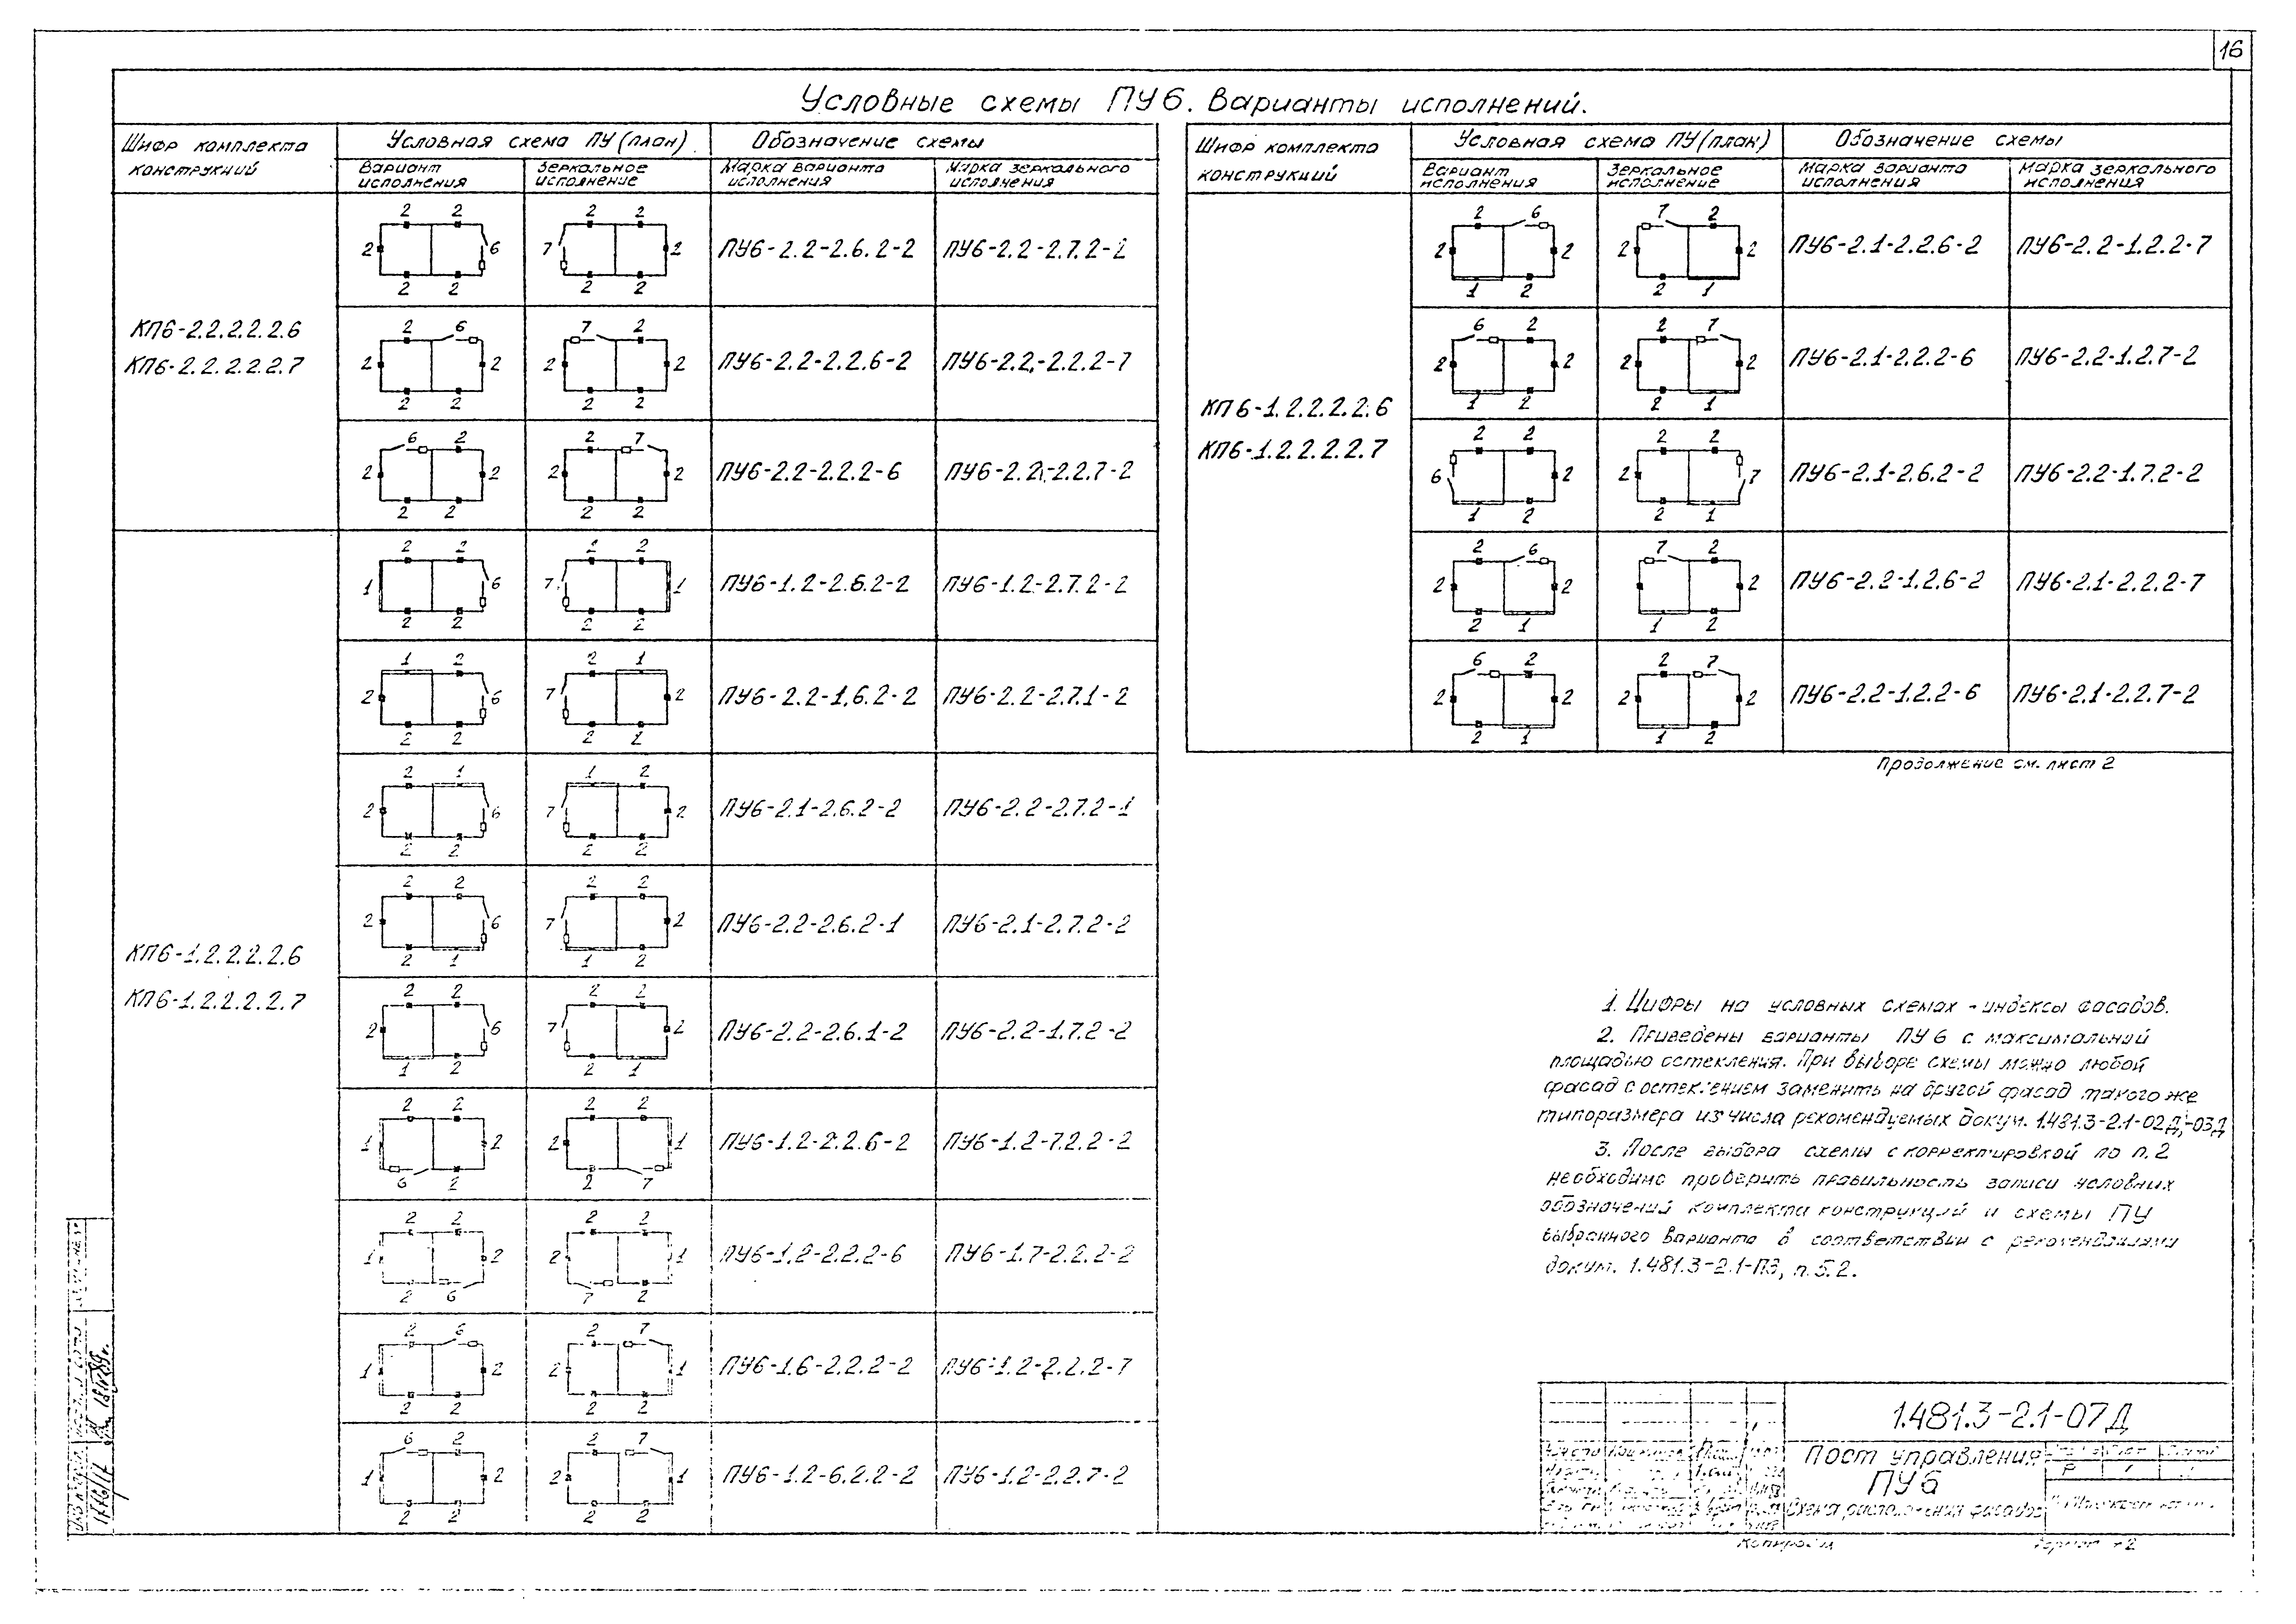 16
Условные схемы ПУ6. Варианты исполнений.
Шифр комплекта конструкций
Условная схема ПУ (план)
Обозначение схемы
Вариант исполнения
Зеркальное исполнение
Марка варианта исполнения
Марка зеркального исполнения
КП6-2.2.2.2.2.6
КП6-2.2.2.2.2.7
2 2 2 6 2 2
2 2 7 2 2 2
ПУ6-2.2-2.6.2-2 ПУ6-2.2-2.7.2-2
2 6 2 2 2 2
7 2 2 2 2 2
ПУ6-2.2-2.2.6-2 ПУ6-2.2-2.2.2-7
6 2 2 2 2 2
2 7 2 2 2 2
ПУ6-2.2-2.2.2-6 ПУ6-2.2-2.2.7-2
КП6-1.2.2.2.2.6
КП6-1.2.2.2.2.7
2 2 1 6 2 2
2 2 7 1 2 2
ПУ6-1.2-2.6.2-2 ПУ6-1.2-2.7.2-2
1 2 2 6 2 2
2 1 7 2 2 2
ПУ6-2.2-1.6.2-2 ПУ6-2.2-2.7.1-2
2 1 2 6 2 2
1 2 7 2 2 2
ПУ6-2.1-2.6.2-2 ПУ6-2.2-2.7.2-1
2 2 2 6 2 1
2 2 7 2 1 2
ПУ6-2.2-2.6.2-1 ПУ6-2.1-2.7.2-2
2 2 2 6 1 2
2 2 7 2 2 1
ПУ6-2.2-2.6.1-2 ПУ6-2.2-1.7.2-2
2 2 1 2 6 2
2 2 2 1 2 7
ПУ6-1.2-2.2.6-2 ПУ6-1.2-7.2.2-2
2 2 1 2 2 6
2 2 2 1 7 2
ПУ6-1.2-2.2.2-6 ПУ6-1.7-2.2.2-2
2 6 1 2 2 2
2 7 2 1 2 2
ПУ6-1.6-2.2.2-2 ПУ6-1.2-2.2.2-7
6 2 1 2 2 2
2 7 2 1 2 2
ПУ6-1.2-6.2.2-2 ПУ6-1.2-2.2.7-2
Шифр комплекта конструкций
Условная схема ПУ (план)
Обозначение схемы
Вариант исполнения
Зеркальное исполнение
Марка варианта исполнения
Марка зеркального исполнения
КП6-1.2.2.2.2.6
КП6-1.2.2.2.2.7
2 6 2 2 1 2
7 2 2 2 2 1
ПУ6-2.1-2.2.6-2 ПУ6-2.2-1.2.2-7
6 2 2 2 1 2
2 7 2 2 2 1
ПУ6-2.1-2.2.2-6 ПУ6-2.2-1.2.7-2
2 2 6 2 1 2
2 2 2 7 2 1
ПУ6-2.1-2.6.2-2 ПУ6-2.2-1.7.2-2
2 6 2 2 2 1
7 2 2 1 2
ПУ6-2.2-1.2.6-2 ПУ6-2.1-2.2.2-7
6 2 2 2 2 1
2 7 2 2 1 2
ПУ6-2.2-1.2.2-6 ПУ6-2.1-2.2.7-2
Продолжение см. лист 2
1. Цифры на условных схемах - индексы фасадов.
2. Приведены варианты ПУ6 с максимальной
площадью остекления. При выборе схемы можно любой
фасад с остеклением заменить на другой фасад такого же
типоразмера из числа рекомендуемых докум. 1.481.3-2.1-02Д,-03Д
3. После выбора схемы с корректировкой по п.2
необходимо проверить правильность записи условных
обозначений комплекта конструкций и схемы ПУ
выбранного варианта в соответствии с рекомендациями
докум. 1.481.3-2.1-ПЗ, п.5.2.
1.481.3-2.1-07Д
Пост управления
ПУ6
Схема расположения фасадов
Р 1
Копировал
Формат А2